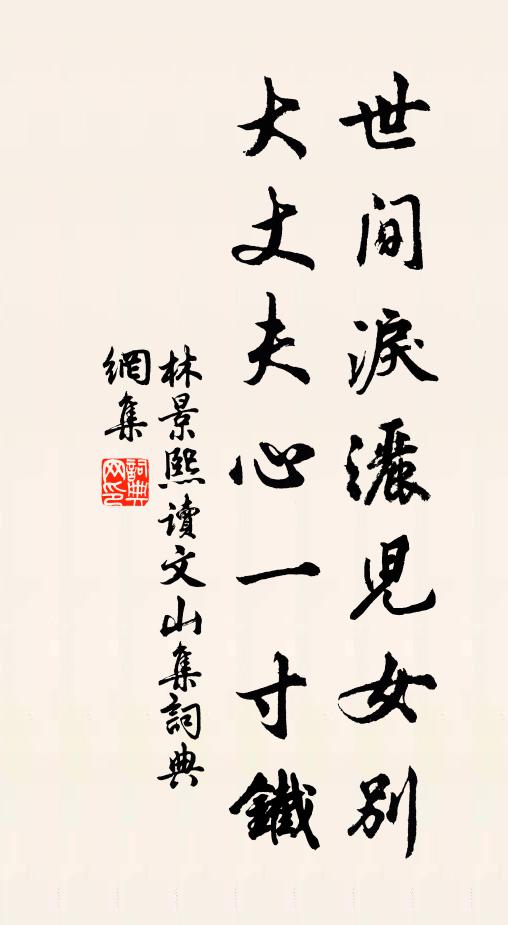 世間淚灑兒女別
大丈夫心一寸鐵
林景熙讀文山集詞典
網集
詞典
网印